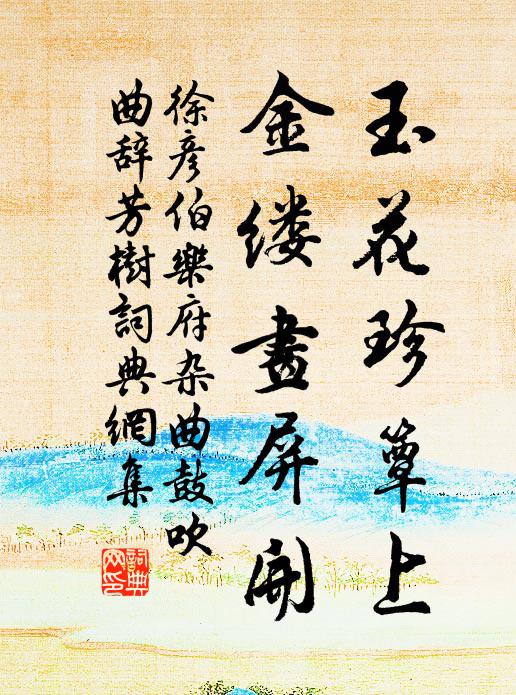 玉花珍簟上
金缕畫屏開
徐彦伯樂府杂曲鼓吹
曲辞芳樹詞典網集
詞典